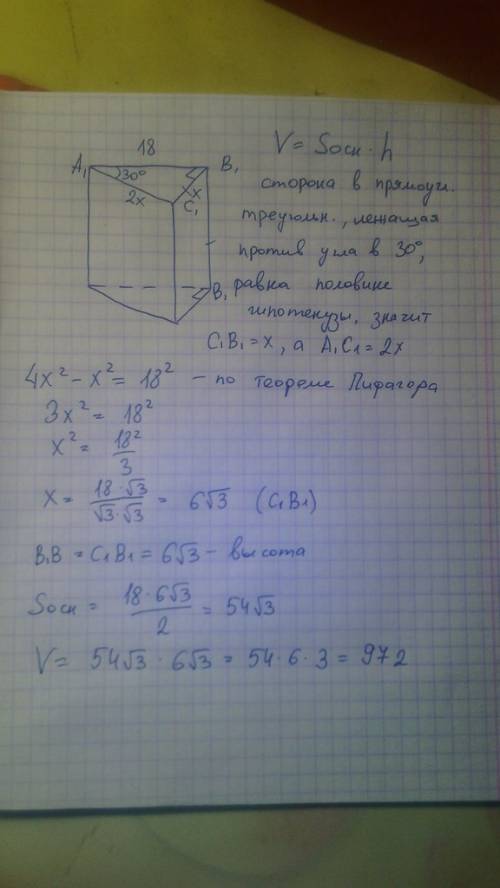 18
V = Sосн · h
A₁ 30° B₁
2x x C₁
B₁
сторона в прямоуг.
треугольн., лежащая
против угла в 30°,
равна половине
гипотенузы, значит
C₁B₁ = x, а A₁C₁ = 2x
4x² - x² = 18² - по теореме Пифагора
3x² = 18²
x² = 18²/3
x = 18·√3/√3·√3 = 6√3 (C₁B₁)
B₁B = C₁B₁ = 6√3 - высота
Sосн = 18·6√3/2 = 54√3
V = 54√3 · 6√3 = 54·6·3 = 972